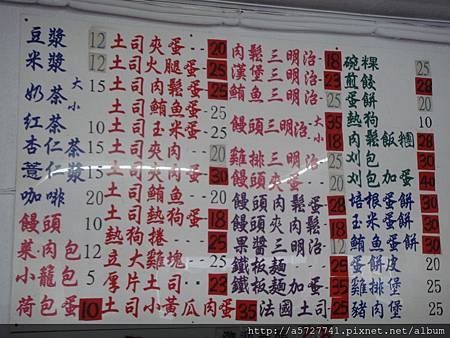 豆漿 12
米漿 12
奶茶 大 小 15
紅茶 10
杏仁茶 15
薏仁漿 15
咖啡 20
饅頭 10
菜.肉包 12
小籠包 5
荷包蛋 10
土司夾蛋 20
土司火腿蛋
土司肉鬆蛋
土司鮪魚蛋 25
土司玉米蛋
土司夾肉
土司夾肉蛋
土司鮪魚
土司熱狗蛋
熱狗捲
立大雞塊 25
厚片土司 25
土司小黃瓜肉蛋 35
肉鬆三明治 18
漢堡三明治
鮪魚三明治
饅頭三明治 大 小 35
雞排三明治
饅頭夾蛋
饅頭肉鬆蛋 28
饅頭夾肉蛋
果醬三明治
鐵板麵 25
鐵板麵加蛋 35
法國土司 25
碗粿 25
煎餃 28
蛋餅 20
熱狗 10
肉鬆飯糰 28
刈包 30
刈包加蛋 40
培根蛋餅 30
玉米蛋餅 30
鮪魚蛋餅 30
蛋餅皮 20
豬排堡
豬肉堡 25
http://a5727741.pixnet.net/album